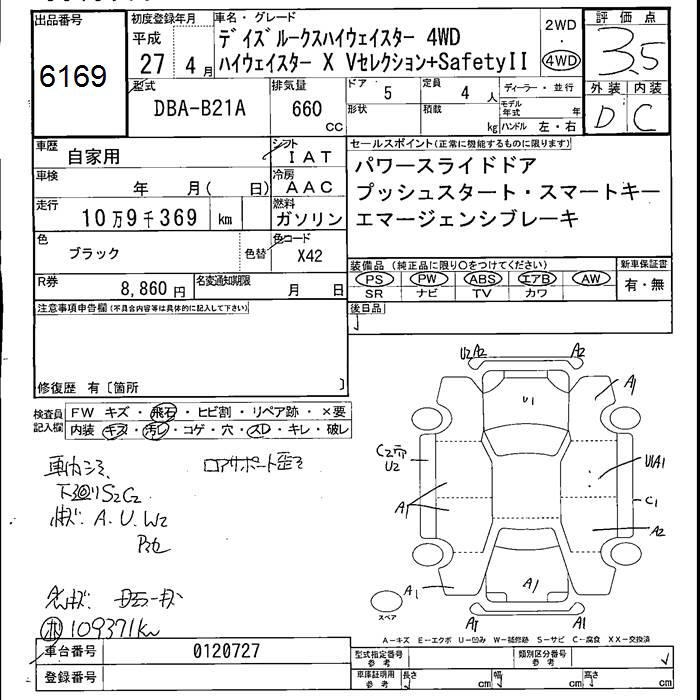 出品番号
6169
初度登録年月
平成
27 4月
車名・グレード
デイズルークスハイウェイスター 4WD
ハイウェイスター X Vセレクション+SafetyII
2WD
・
4WD
評価点
3.5
外装 内装
D C
型式
DBA-B21A
排気量
660
cc
ドア
5
定員
4 人
ディーラー・並行
形状
積載
kg
モデル年式
年
ハンドル 左・右
車歴
自家用
シフト
IAT
車検
年 月( 日)
冷房
AAC
走行
10万9千369 km
燃料
ガソリン
色
ブラック
色替
色コード
X42
R券
8,860 円
名変通知期限
月 日
セールスポイント(正常に機能するものに限ります)
パワースライドドア
プッシュスタート・スマートキー
エマージェンシブレーキ
装備品(純正品に限り○をつけてください)
PS PW ABS エアB AW
SR ナビ TV カワ
新車保証書
有・無
注意事項申告欄(不具合内容等は具体的に記入して下さい)
後日品
修復歴 有〔箇所 〕
検査員記入欄
FW キズ・飛石・ヒビ割・リペア跡・×要
内装 キズ・汚レ・コゲ・穴・スレ・キレ・破レ
下廻りS2C2
A.U.W2
109371km
U2 A2
A2
U1
A1
U2
A1
U1A1
C1
A2
A1
A1
A1
A1
スペア
A-キズ E-エクボ U-凹み W-補修跡 S-サビ C-腐食 XX-交換済
車台番号
0120727
登録番号
型式指定番号
参考
類別区分番号
参考
車庫証明用
参考
長さ cm
幅 cm
高さ cm